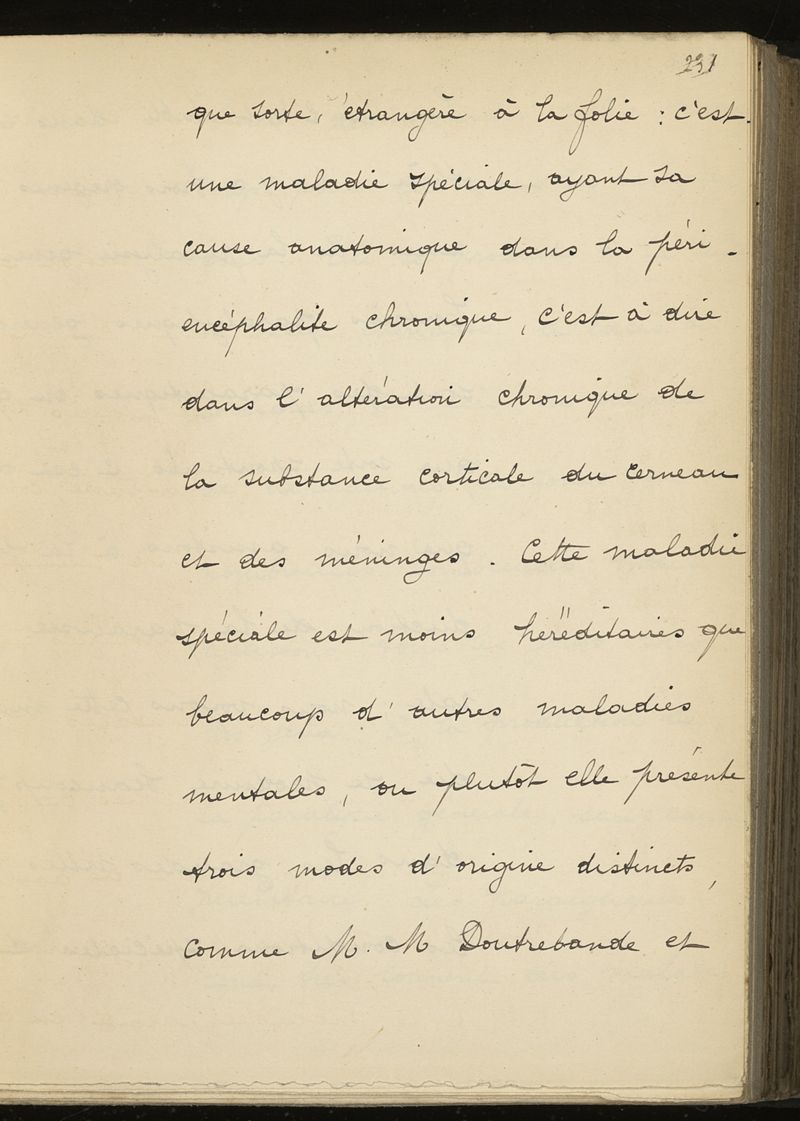 231
que sorte, étrangère à la folie : c'est
une maladie spéciale, ayant sa
cause anatomique dans la péri -
encéphalite chronique, c'est à dire
dans l'altération chronique de
la substance corticale du cerneau
et des méninges. Cette maladie
spéciale est moins héréditaires que
beaucoup d'autres maladies
mentales, ou plutôt elle présente
trois modes d'origine distincts,
comme M. M Doutrebande et